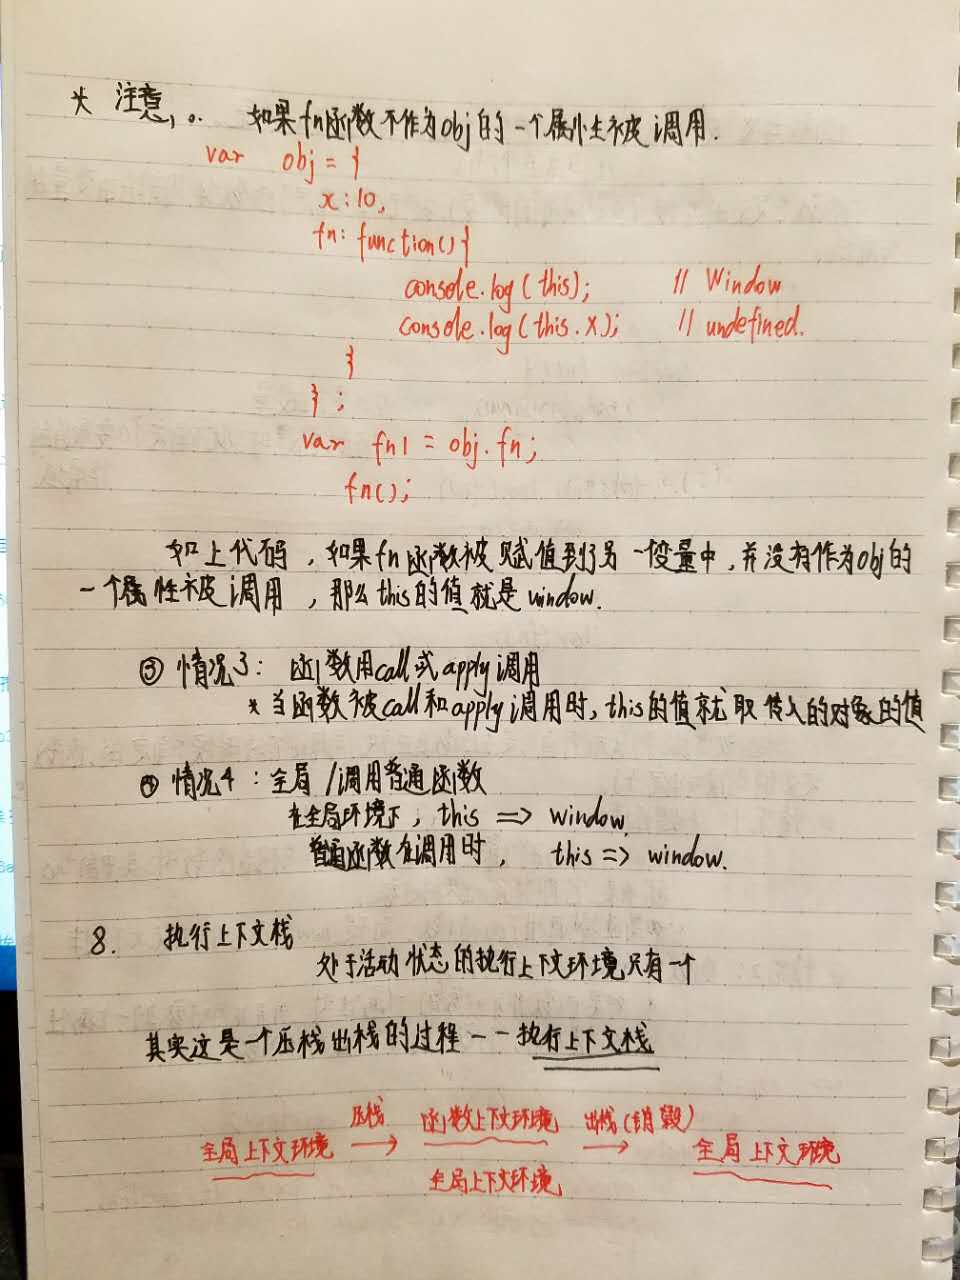 * 注意,。. 如果fn函数不作为obj的一个属性被调用.
var obj = {
x:10,
fn: function(){
console.log(this); // Window
console.log(this.x); // undefined.
}
};
var fn1 = obj.fn;
fn();
如上代码,如果fn函数被赋值到了另一变量中,并没有作为obj的
一个属性被调用,那么this的值就是window.
③ 情况3: 函数用call或apply调用
* 当函数被call和apply调用时,this的值就取传入的对象的值
④ 情况4:全局/调用普通函数
在全局环境下, this => window
普通函数在调用时, this => window.
8. 执行上下文栈
处于活动状态的执行上下文环境只有一个
其实这是一个压栈出栈的过程--执行上下文栈
压栈 函数上下文环境 出栈(销毁)
全局上下文环境 → → 全局上下文环境
全局上下文环境